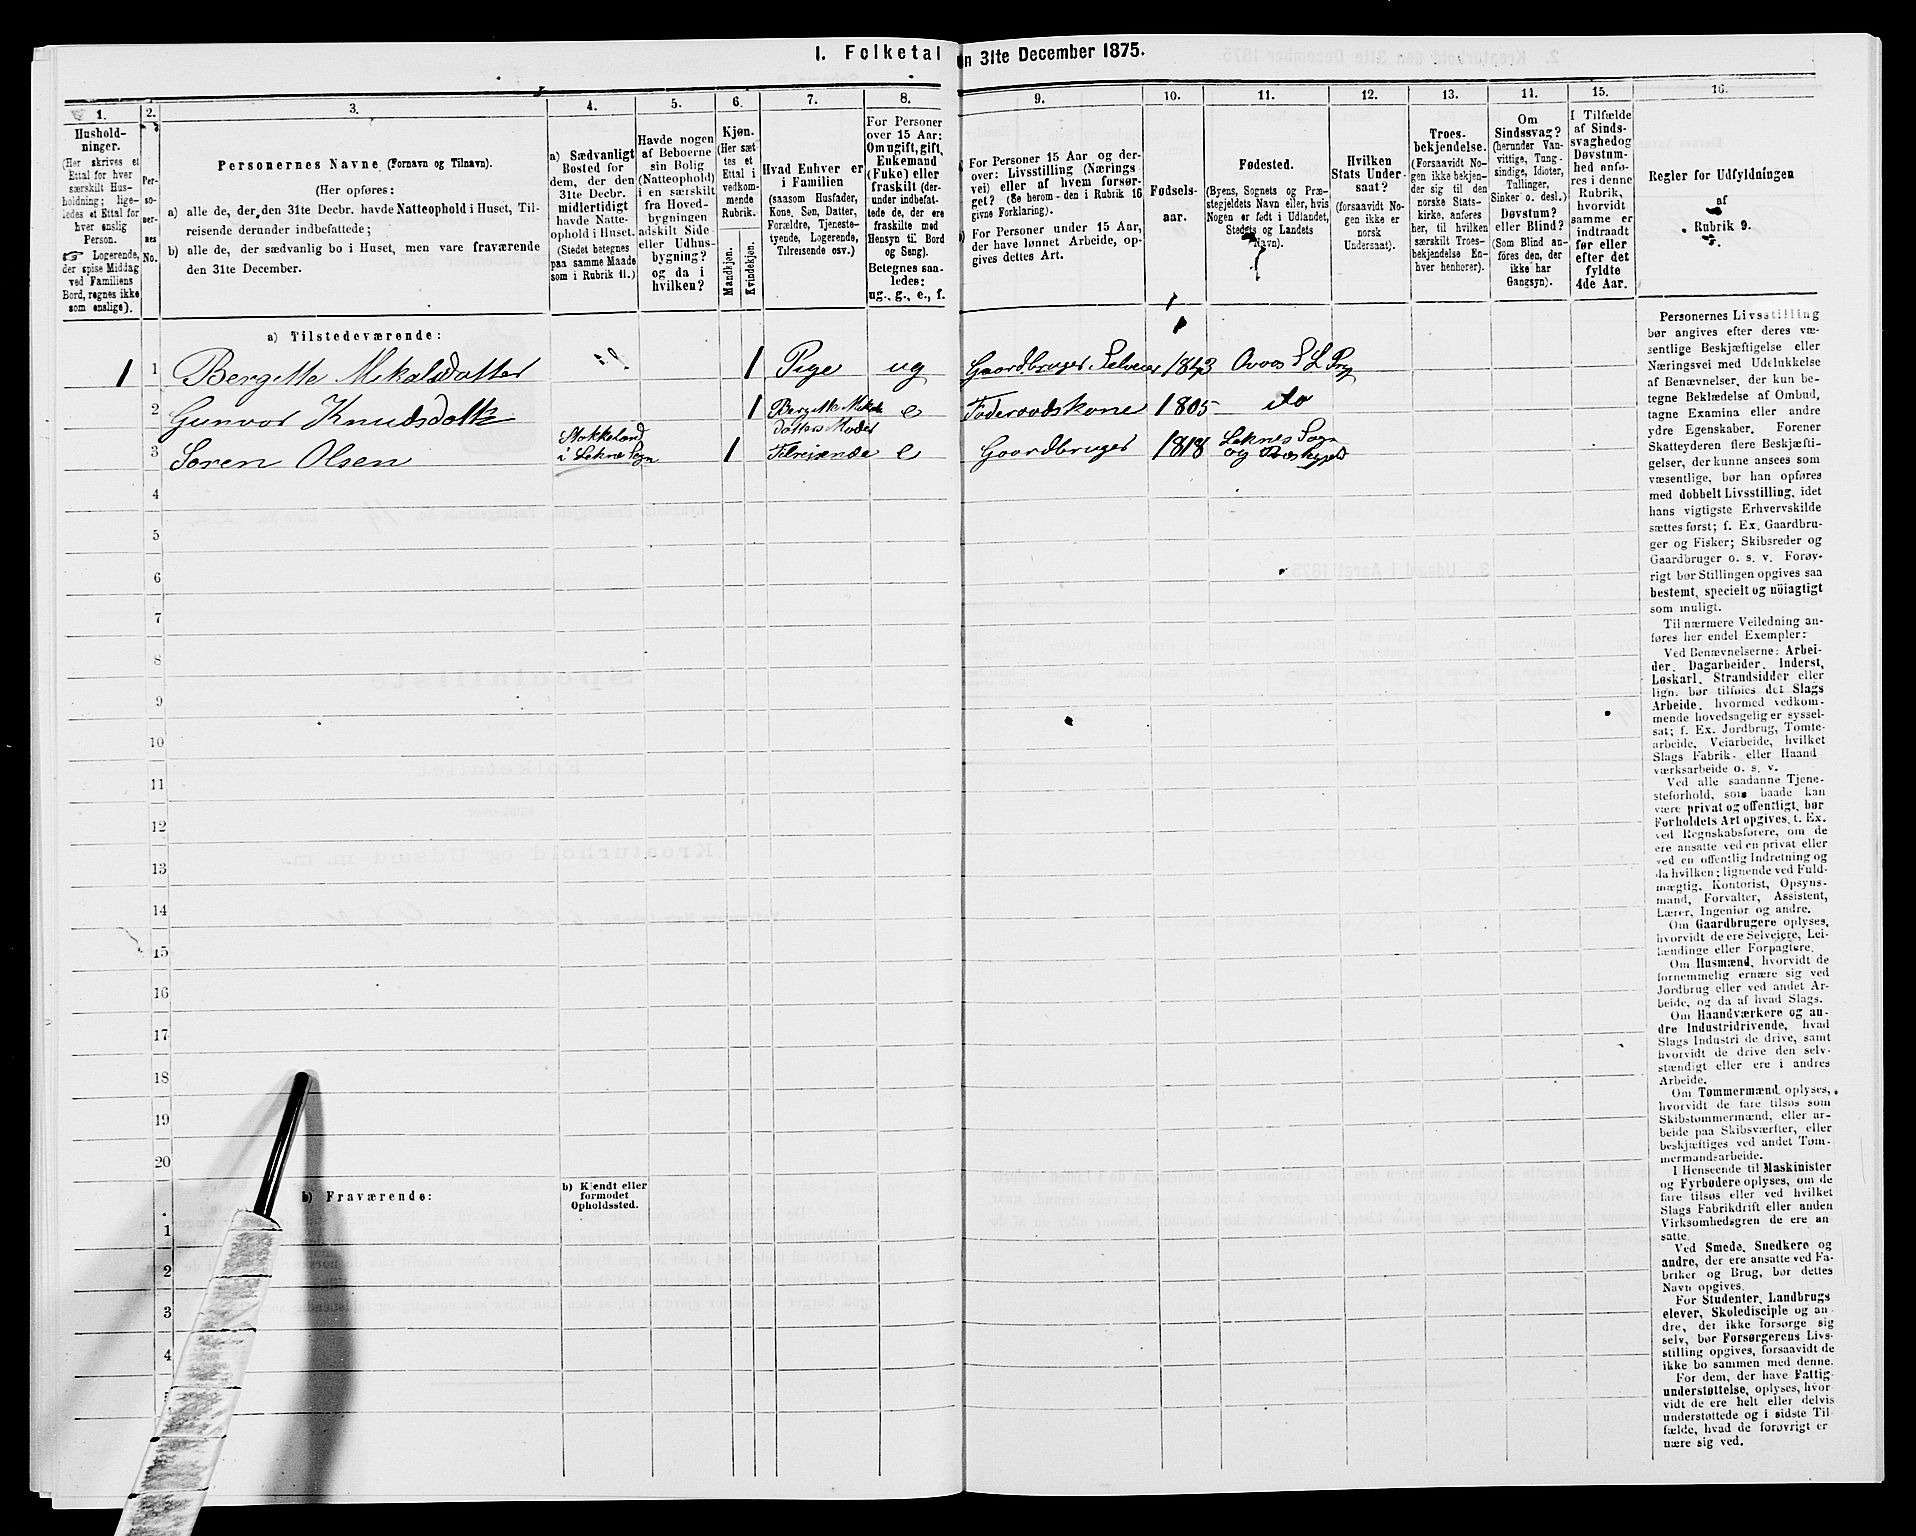 1. Folketal
en 31te December 1875.
1. 2. 3. 4. 5. 6. 7. 8. 9. 10. 11. 12. 13. 14. 15. 16.
Hushold-
ninger.
(Her skrives et
Ettal for hver
særskilt Hus-
holdning; lige-
ledes et Ettal for
hver enslig
Person.
☞ Logerende,
der spise Middag
ved Familiens
Bord, regnes ikke
som enslige).
Per-
so-
ner-
nes
No.
Personernes Navne (Fornavn og Tilnavn).
(Her opføres:
a) alle de, der den 31te Decbr. havde Natteophold i Huset, Til-
reisende derunder indbefattede;
b) alle de, der sædvanlig bo i Huset, men vare fraværende
den 31te December.
a) Sædvanligt
Bosted for
dem, der den
31te Decbr.
midlertidigt
havde Natte-
ophold i Huset.
(Stedet betegnes
paa samme Maade
som i Rubrik 11.)
Havde nogen
af Beboerne
sin Bolig
(Natteophold)
i en særskilt
fra Hoved-
bygningen
adskilt Side-
eller Udhus-
bygning?
og da i
hvilken?
Kjøn.
(Her sæt-
tes et
Ettal i
vedkom-
mende
Rubrik.
Mandkjøn.
Kvindekjøn.
Hvad Enhver er
i Familien
(saasom Husfader,
Kone, Søn, Datter,
Forældre, Tjeneste-
tyende, Logerende,
Tilreisende osv.)
For Personer
over 15 Aar:
Om ugift, gift,
Enkemand
(Enke) eller
fraskilt (der-
under indbefat-
tede de, der ere
fraskilte med
Hensyn til Bord
og Seng).
Betegnes saa-
ledes:
ug., g., e., f.
For Personer 15 Aar og der-
over: Livsstilling (Nærings-
vei) eller af hvem forsør-
get? (Se herom den i Rubrik 16
givne Forklaring).
For Personer under 15 Aar,
der have lønnet Arbeide, op-
gives dettes Art.
Fødsels-
aar.
Fødested.
(Byens, Sognets og Præ-
stegjeldets Navn eller, hvis
Nogen er født i Udlandet,
Stedets og Landets
Navn).
Hvilken
Stats Under-
saat?
(forsaavidt No-
gen ikke er
norsk
Undersaat).
Troes-
bekjendelse.
(Forsaavidt No-
gen ikke bekjen-
der sig til den
norske Stats-
kirke, anføres
her, til hvilken
særskilt Troes-
bekjendelse En-
hver henhører).
Om
Sindssvag?
(herunder Van-
vittige, Tung-
sindige, Idioter,
Tullinger,
Sinker o. desl.)
Døvstum?
eller Blind?
(Som Blind an-
føres den, der
ikke har
Gangsyn).
I Tilfælde
af Sinds-
svaghed og
Døvstum-
hed anfø-
res i denne
Rubrik,
hvorvidt
samme er
indtraadt
før eller
efter det
fyldte
4de Aar.
Regler for Udfyldningen
af
Rubrik 9.
a) Tilstedeværende:
1 1 Bergitte Mikalsdatter 1 Pige ug Gaardbruger Selveier 1843
2 Gunvor Knudsdatter 1 Bergitte Mikals
datters Moder e Føderaadskone 1805 do
3 Soren Olsen Stokkeland
i Sogn 1 Tilreisende e Gaardbruger 1818 Sogn
og
4
5
6
7
8
9
10
11
12
13
14
15
16
17
18
19
20
b) Fraværende:
b) Kjendt eller
formodet
Opholdssted.
1
2
3
4
5
Personernes Livsstilling
bør angives efter deres væ-
sentlige Beskjæftigelse eller
Næringsvei med Udelukkelse
af Benævnelser, der kun be-
tegne Beklædelse af Ombud,
tagne Examina eller andre
ydre Egenskaber. Forener
Skatteyderen flere Beskjæfti-
gelser, der kunne ansees som
væsentlige, bør han opføres
med dobbelt Livsstilling, idet
hans vigtigste Erhvervskilde
sættes først; f. Ex. Gaardbru-
ger og Fisker; Skibsreder og
Gaardbruger o. s. v. Forøv-
rigt bør Stillingen opgives saa
bestemt, specielt og nöiagtigt
som muligt.
Til nærmere Veiledning an-
føres her endel Exempler:
Ved Benævnelserne: Arbei-
der, Dagarbeider, Inderst,
Løskarl, Strandsidder eller
lign. bør tilføies det Slags
Arbeide, hvormed vedkom-
mende hovedsagelig er syssel-
sat; f. Ex. Jordbrug, Tomte-
arbeide, Veiarbeide, hvilket
Slags Fabrik- eller Haand-
værksarbeide o. s. v.
Ved alle saadanne Tjene-
steforhold, som baade kan
være privat og offentligt, bør
Forholdets Art opgives, t. Ex.
ved Regnskabsførere, om de
ere ansatte ved en privat eller
ved en offentlig Indretning og
da hvilken; lignende ved Fuld-
mægtig, Kontorist, Opsyns-
mand, Forvalter, Assistent,
Lærer, Ingeniør og andre.
Om Gaardbrugere oplyses,
hvorvidt de ere Selveiere, Lei-
lændinge eller Forpagtere.
Om Husmænd, hvorvidt de
fornemmelig ernære sig ved
Jordbrug eller ved andet Ar-
beide, og da af hvad Slags.
Om Haandværkere og an-
dre Industridrivende, hvad
Slags Industri de drive, samt
hvorvidt de drive den selv-
stændigt eller ere i andres
Arbeide.
Om Tømmermænd oplyses,
hvorvidt de fare tilsøs som
Skibstømmermænd, eller ar-
beide paa Skibsværfter, eller
beskjæftiges ved andet Tøm-
mermandsarbeide.
I Henseende til Maskinister
og Fyrbødere oplyses, om de
fare tilsøs eller ved hvilket
Slags Fabrikdrift eller anden
Virksomhedsgren de ere an-
satte.
Ved Smede, Snedkere og
andre, der ere ansatte ved Fa-
briker og Brug, bør dettes
Navn opgives.
For Studenter, Landbrugs-
elever, Skoledisciple og an-
dre, der ikke forsørge sig
selv, bør Forsørgerens Livs-
stilling opgives, forsaavidt de
ikke bo sammen med denne.
For dem, der have Fattig-
understøttelse, oplyses, hvor-
vidt de ere helt eller delvis
understøttede og i sidste Til-
fælde, hvad de forøvrigt er-
nære sig ved.